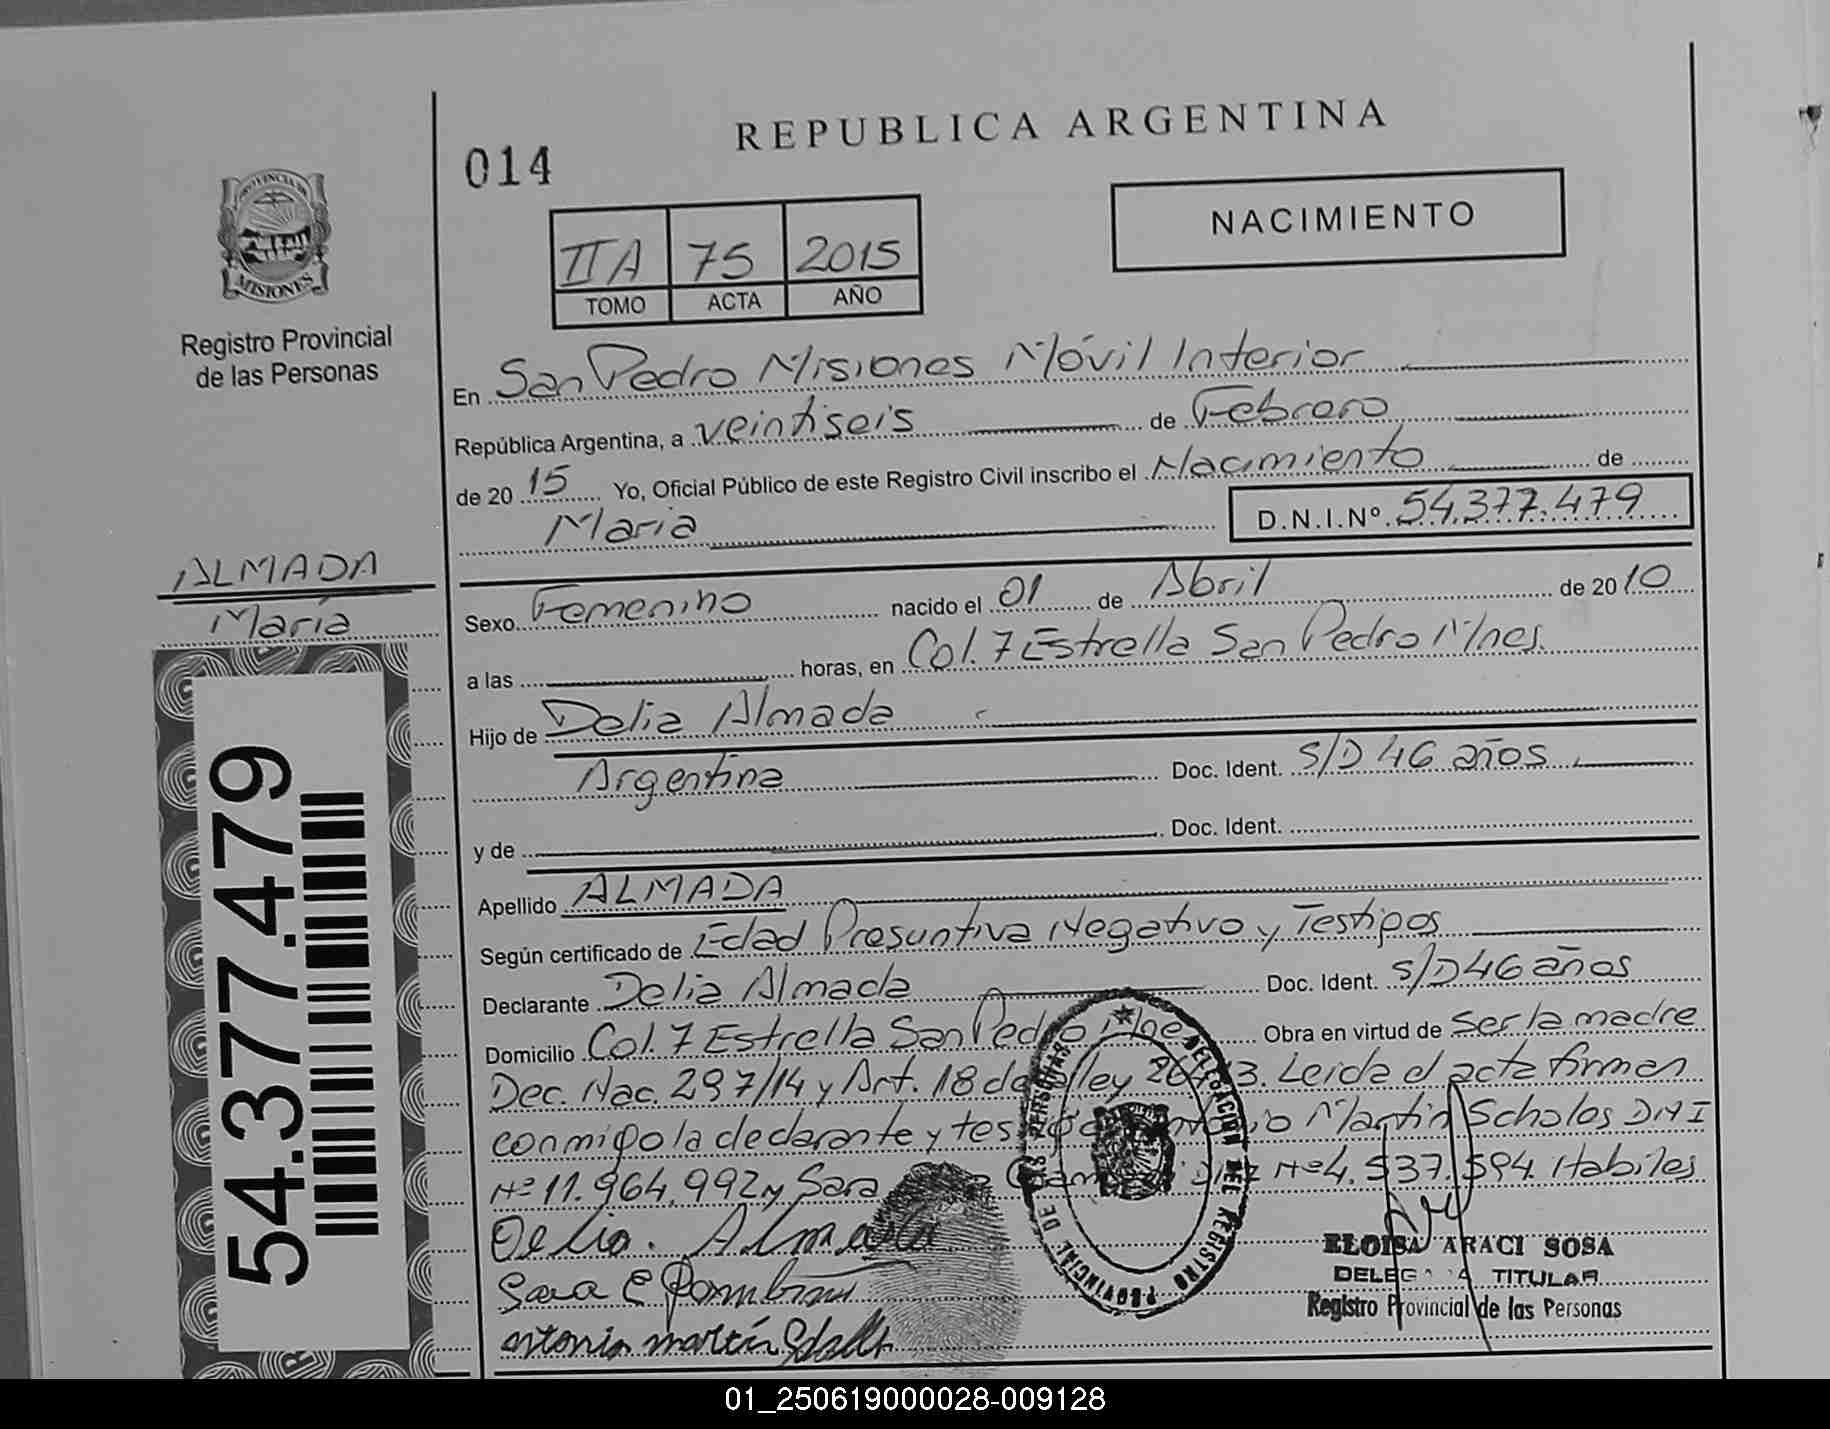 REPUBLICA ARGENTINA
014
NACIMIENTO
PROVINCIA DE
MISIONES
Registro Provincial
de las Personas
II A 75 2015
TOMO ACTA AÑO
En San Pedro Misiones Móvil Interior
República Argentina, a veintiseis de Febrero
de 20 15 Yo, Oficial Público de este Registro Civil inscribo el Nacimiento de
Maria
D.N.I.Nº 54.377.479
ALMADA
María
Sexo Femenino nacido el 01 de Abril de 20 10
a las horas, en Col. 7 Estrella San Pedro Mnes.
Hijo de Delia Almada
Argentina Doc. Ident. S/D 46 años
y de Doc. Ident.
Apellido ALMADA
Según certificado de Edad Presuntiva Negativo y Testigos
Declarante Delia Almada Doc. Ident. S/D 46 años
Domicilio Col. 7 Estrella San Pedro Mnes Obra en virtud de ser la madre
Dec. Nac. 297/14 y Art. 18 de ley 26413. Leida el acta firman
conmigo la declarante y testigos Antonio Martin Scholos DNI
Nº 11.964.992 y Sara Nº 4.537.594. Habiles
Delia. Almada
Sara E
antonio martín
54.377.479
DELEGACION DEL REGISTRO PROVINCIAL DE LAS PERSONAS
ELOISA ARACI SOSA
DELEGADA TITULAR
Registro Provincial de las Personas
01_250619000028-009128